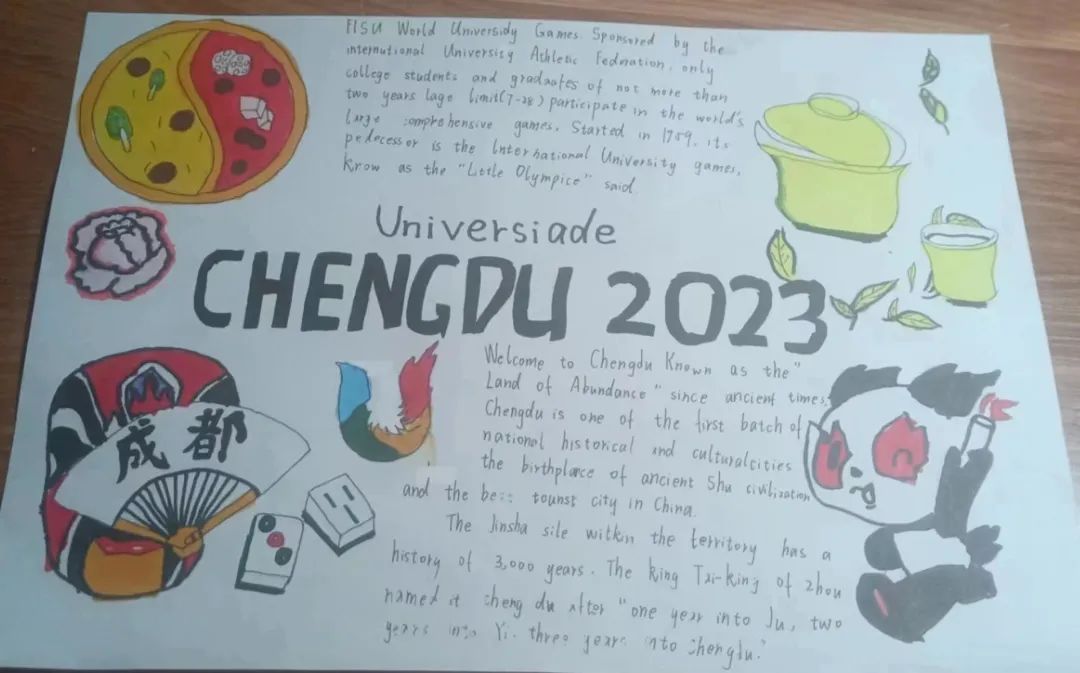 FISU World Universidy Games. Sponsored by the
international University Athletic Fednation. only
college students and graduates of not more than
two years lage limit(7-28) participate in the world's
large comprehensive games. Started in 1959. its
pedecessor is the International University games,
Krow as the "Little Olympice" said.
Universiade
CHENGDU 2023
Welcome to Chengdu Known as the "
Land of Abundance" since ancient times,
Chengdu is one of the first batch of
national historical and culturalcities
, the birthplace of ancient Shu civilization
and the best tounst city in China.
The Jinsha sile witkin the territory has a
history of 3,000 years. The king Tai-king of zhou
named it cheng du after "one year into Ju, two
years into Yi. three years into chengdu."
成都